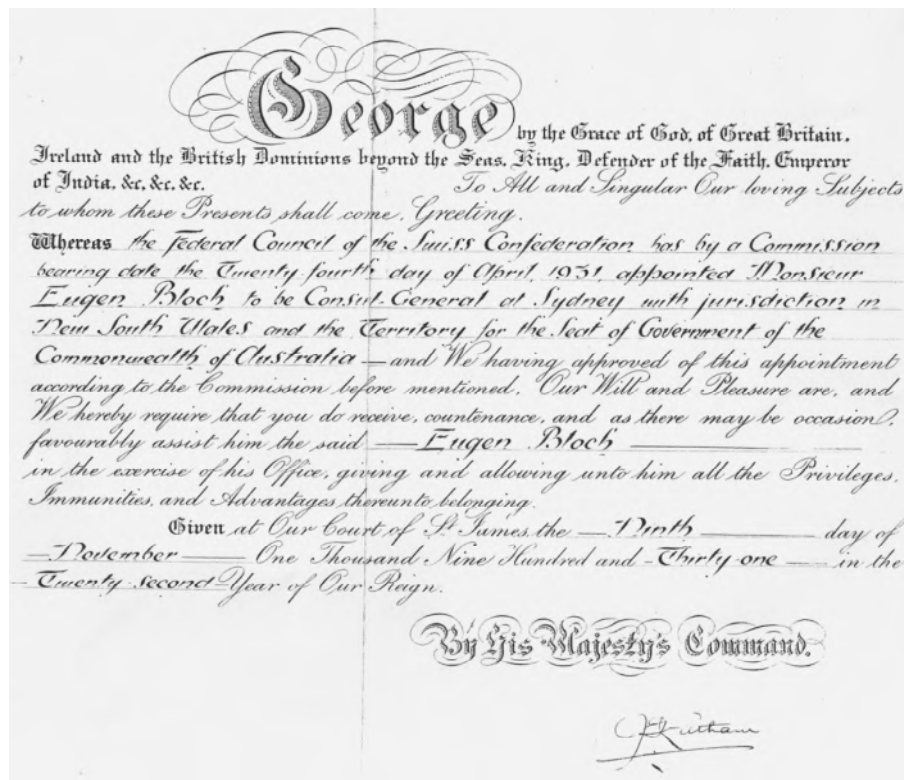 George by the Grace of God, of Great Britain,
Ireland and the British Dominions beyond the Seas, King, Defender of the Faith, Emperor
of India, &c, &c, &c. To All and Singular Our loving Subjects
to whom these Presents shall come, Greeting.
Whereas the Federal Council of the Swiss Confederation has by a Commission
bearing date the Twenty-fourth day of April, 1931, appointed Monsieur
Eugen Bloch to be Consul-General at Sydney with jurisdiction in
New South Wales and the Territory for the Seat of Government of the
Commonwealth of Australia — and We having approved of this appointment
according to the Commission before mentioned, Our Will and Pleasure are, and
We hereby require that you do receive, countenance, and as there may be occasion,
favourably assist him the said — Eugen Bloch —
in the exercise of his Office, giving and allowing unto him all the Privileges,
Immunities, and Advantages thereunto belonging.
Given at Our Court of St. James, the — Ninth — day of
— November — One Thousand Nine Hundred and - Thirty-one — in the
- Twenty-second - Year of Our Reign.
By His Majesty's Command.